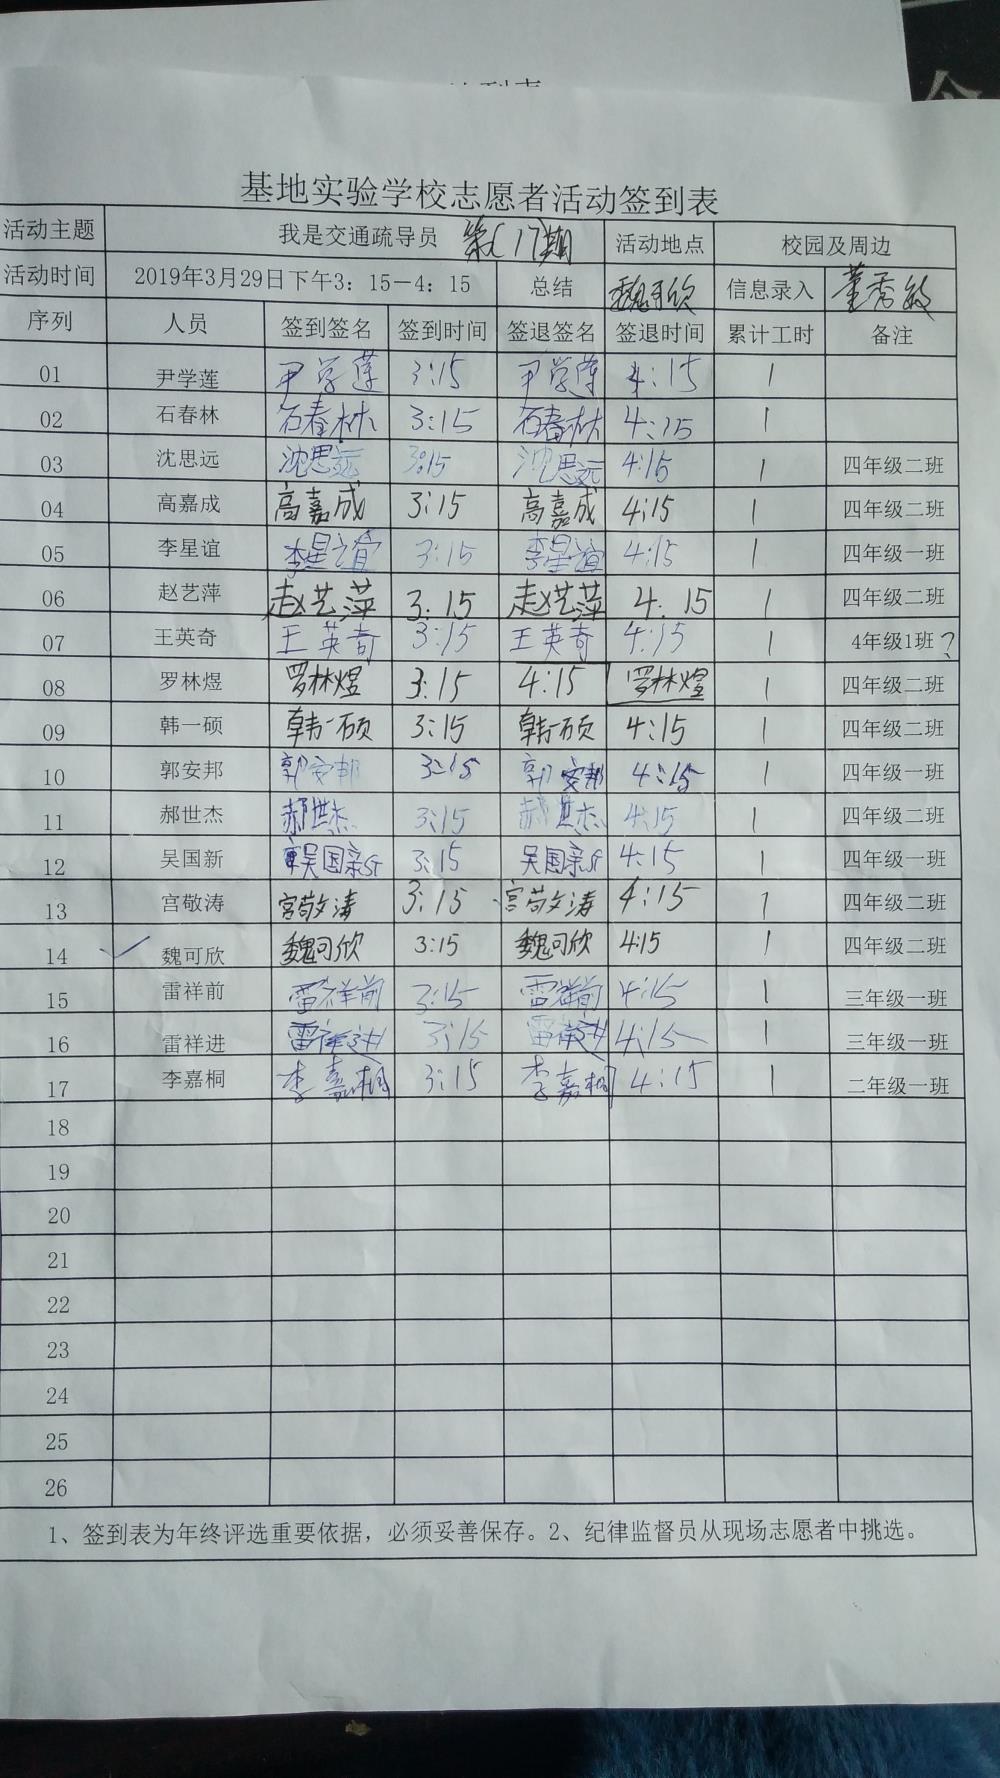 基地实验学校志愿者活动签到表
活动主题 我是交通疏导员 第(17)期 活动地点 校园及周边
活动时间 2019年3月29日下午3：15－4：15 总结 魏可欣 信息录入 董秀敏
序列 人员 签到签名 签到时间 签退签名 签退时间 累计工时 备注
01 尹学莲 尹学莲 3:15 尹学莲 4:15 1
02 石春林 石春林 3:15 石春林 4:15 1
03 沈思远 沈思远 3:15 沈思远 4:15 1 四年级二班
04 高嘉成 高嘉成 3:15 高嘉成 4:15 1 四年级二班
05 李星谊 李星谊 3:15 李星谊 4:15 1 四年级一班
06 赵艺萍 赵艺萍 3:15 赵艺萍 4:15 1 四年级二班
07 王英奇 王英奇 3:15 王英奇 4:15 1 4年级1班?
08 罗林煜 罗林煜 3:15 4:15 罗林煜 1 四年级二班
09 韩一硕 韩一硕 3:15 韩一硕 4:15 1 四年级二班
10 郭安邦 郭安邦 3:15 郭安邦 4:15 1 四年级一班
11 郝世杰 郝世杰 3:15 郝世杰 4:15 1 四年级二班
12 吴国新 吴国新 3:15 吴国新 4:15 1 四年级一班
13 宫敬涛 宫敬涛 3:15 宫敬涛 4:15 1 四年级二班
14 魏可欣 魏可欣 3:15 魏可欣 4:15 1 四年级二班
15 雷祥前 雷祥前 3:15 雷祥前 4:15 1 三年级一班
16 雷祥进 雷祥进 3:15 雷祥进 4:15 1 三年级一班
17 李嘉桐 李嘉桐 3:15 李嘉桐 4:15 1 二年级一班
18
19
20
21
22
23
24
25
26
1、签到表为年终评选重要依据，必须妥善保存。2、纪律监督员从现场志愿者中挑选。